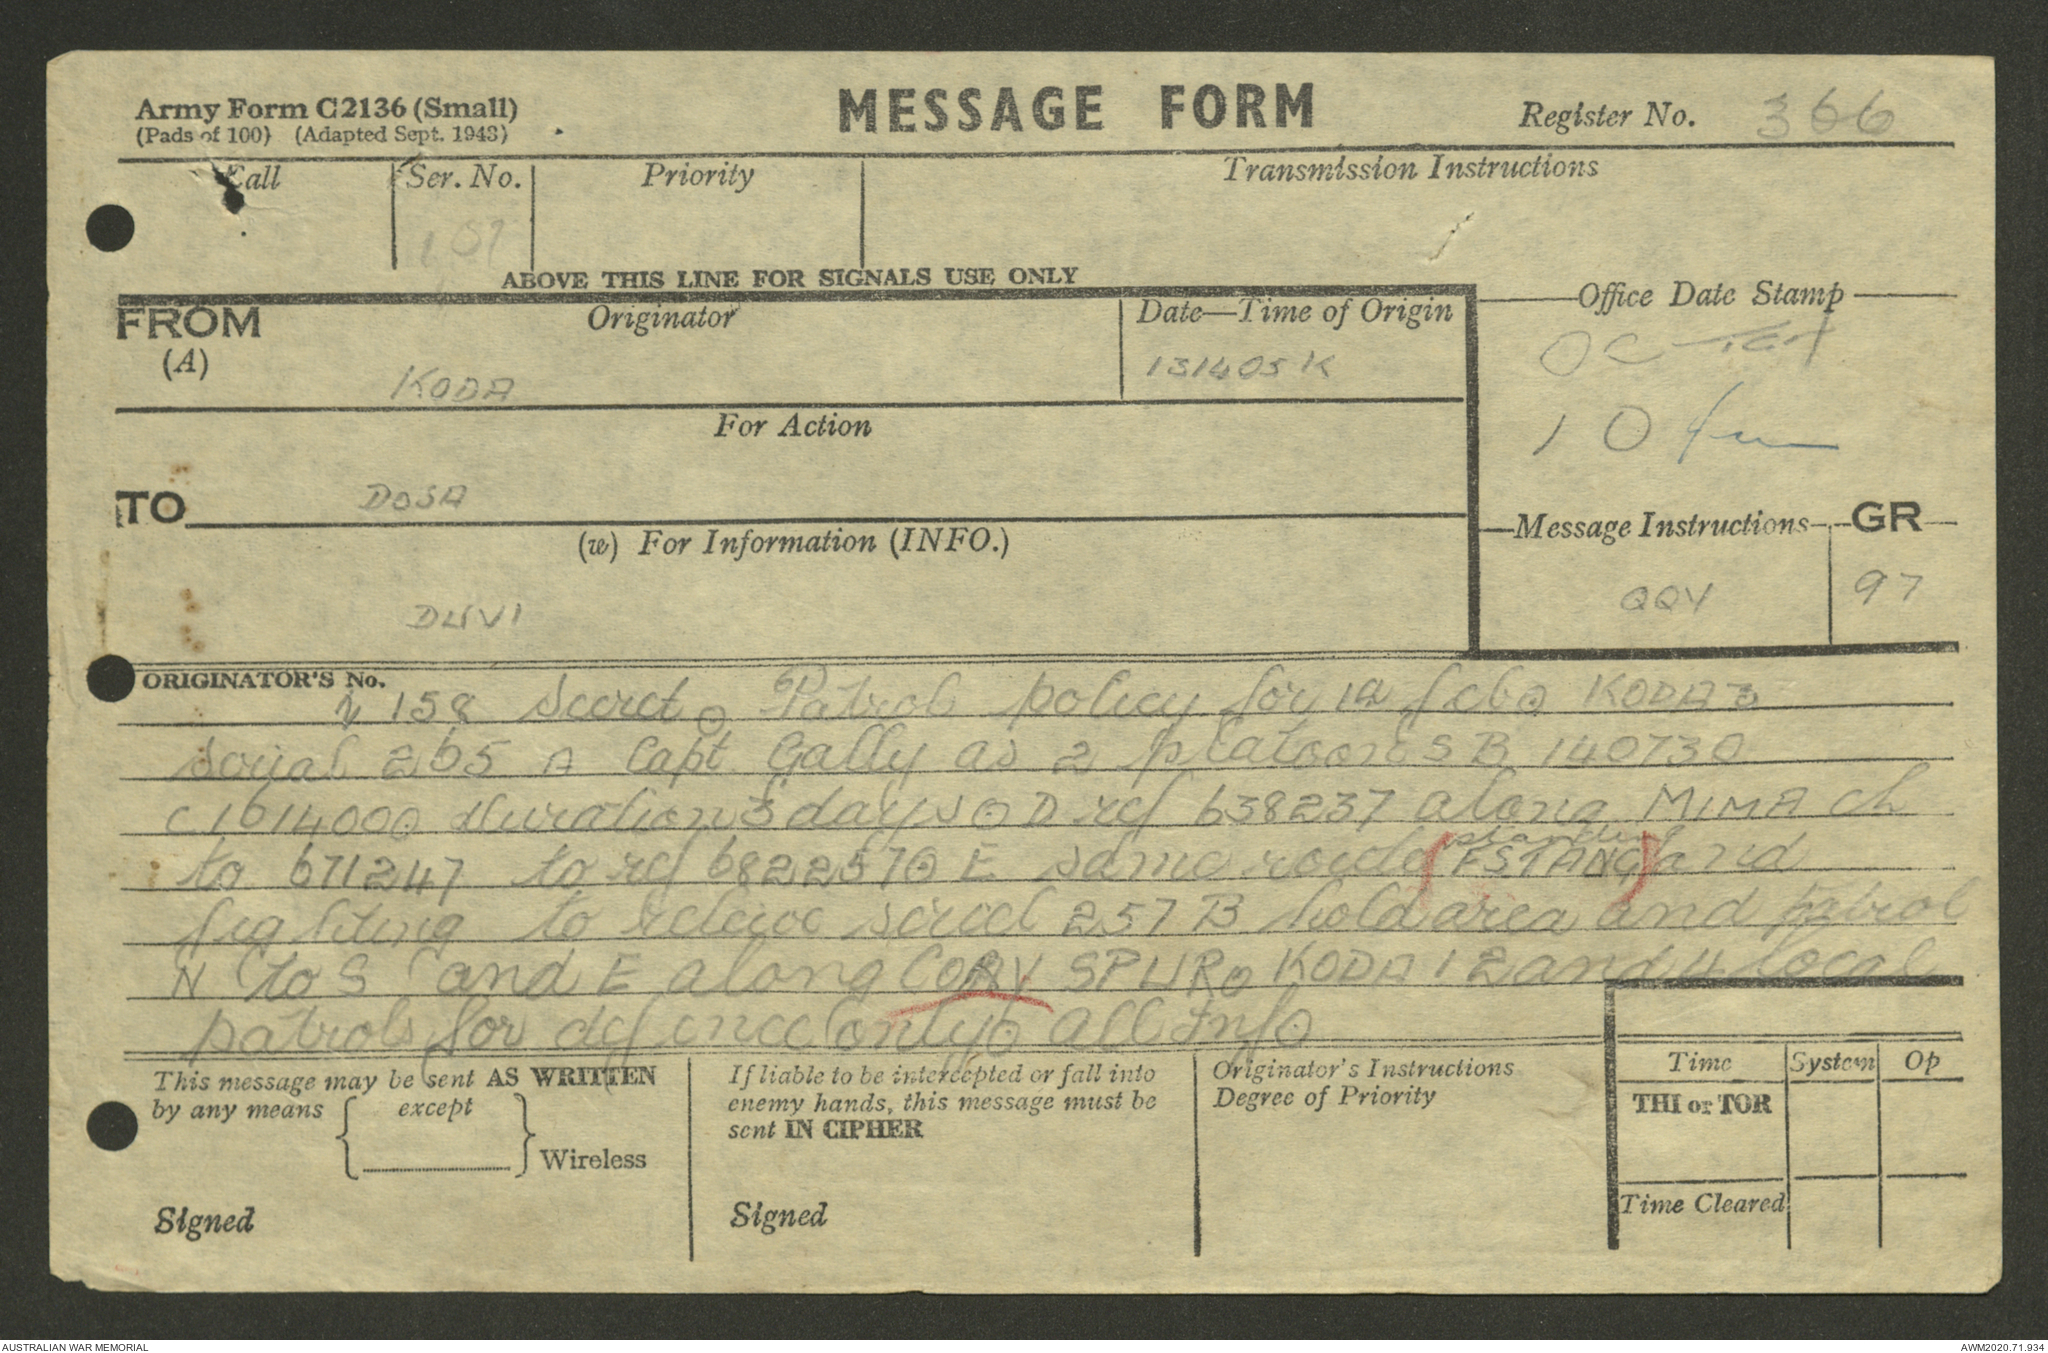 Army Form C2136 (Small)
(Pads of 100) (Adapted Sept. 1943)
MESSAGE FORM
Register No. 366
Call
Ser. No.
Priority
Transmission Instructions
107
ABOVE THIS LINE FOR SIGNALS USE ONLY
FROM
(A)
Originator
KODA
Date—Time of Origin
131405 K
Office Date Stamp
OC
10
For Action
TO
DOSA
(w) For Information (INFO.)
DUVI
Message Instructions
QQY
GR
97
ORIGINATOR'S No.
158 Secret . Patrol policy for feb . KODA 3
serial 265 A Capt Gally as 2 platoons B 140730
C 161400 . duration 3 days . D ref 638237 along MIMA Ck
to 671247 to ref 682257 . E same route (ESTANG) and
fighting to relieve serial 257 B hold area and patrol
N to S and E along CORY SPUR . KODA 1 2 and 4 local
patrols for defence only . all Info .
This message may be sent AS WRITTEN
by any means except
Wireless
Signed
If liable to be intercepted or fall into
enemy hands, this message must be
sent IN CIPHER
Signed
Originator's Instructions
Degree of Priority
Time
System
Op
THI or TOR
Time Cleared
AUSTRALIAN WAR MEMORIAL
AWM2020.71.934